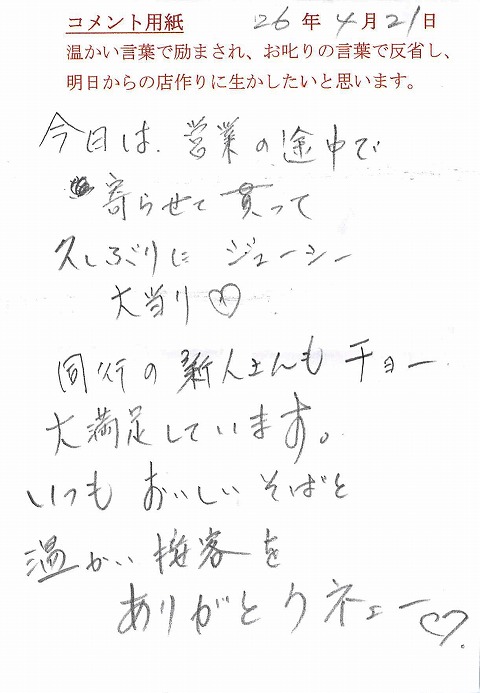 コメント用紙 26年4月21日
温かい言葉で励まされ、お叱りの言葉で反省し、
明日からの店作りに生かしたいと思います。
今日は、営業の途中で
寄らせて貰って
久しぶりに ジューシー
大当り♡
同行の新人さんもチョー
大満足しています。
いつも おいしい そばと
温かい 接客を
ありがとクネェー♡.